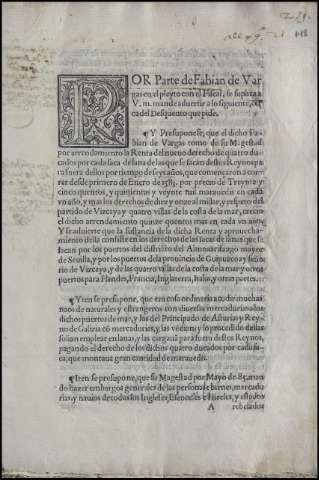 POR Parte de Fabian de Var
gas en el pleyto con el Fiscal, se suplica a
V. m. mande aduertir a lo siguiente, cerca
ca del Desquento que pide.
¶ Y Presuponese, que el dicho Fa
bian de Vargas tomo de su Magestad
por arrendamiento la Renta del nueuo derecho de quatro du
cados por cada saca de lana de las que se sacan destos Reynos pa
ra fuera dellos por tiempo de seys años, que començaron a cor
rer desde primero de Enero de
cincos quentos, y quinientos y veynte mil marauedis en cada
vn año, y mas los derechos de diez y onze al millar, y respeto del
partido de Vizcaya y quatro villas de la costa de la mar, crecio
el dicho arrendamiento quinze quentos mas en cada vn año.
Y se aduierte que la sustancia de la dicha Renta y aprouecha
miento della consiste en los derechos de las sacas de lanas que se
sacan por los puertos del districto del Almoxarifazgo mayor
de Seuilla, y por los puertos de la prouincia de Guipuzcoa y seño
rio de Vizcaya, y de las quatro villas de la costa de la mar y otros
puertos para Flandes, Francia, Inglaterra, Italia, y otras partes.
¶ Yten se presupone, que era cosa ordinaria acudir muchas
naos de naturales y estrangeros con diuersas mercadurias a los
dichos puertos de mar, y las del Principado de Asturias y Rey
no de Galizia cō mercadurias, y las vēdian y lo procedido dellas
solian emplear en lanas, y las cargauā para fuera destos Reynos,
pagando el derecho de los dichos quatro ducados por cada sa
ca, que montaua gran cantidad de marauedis.
¶ Iten se presupone, que su Magestad por Mayo de 85. man
do hazer embargos generales de las personas, bienes, mercadu
rias, y nauios de todos los Ingleses, Esterlines e Irlandeses, y
A rebelados